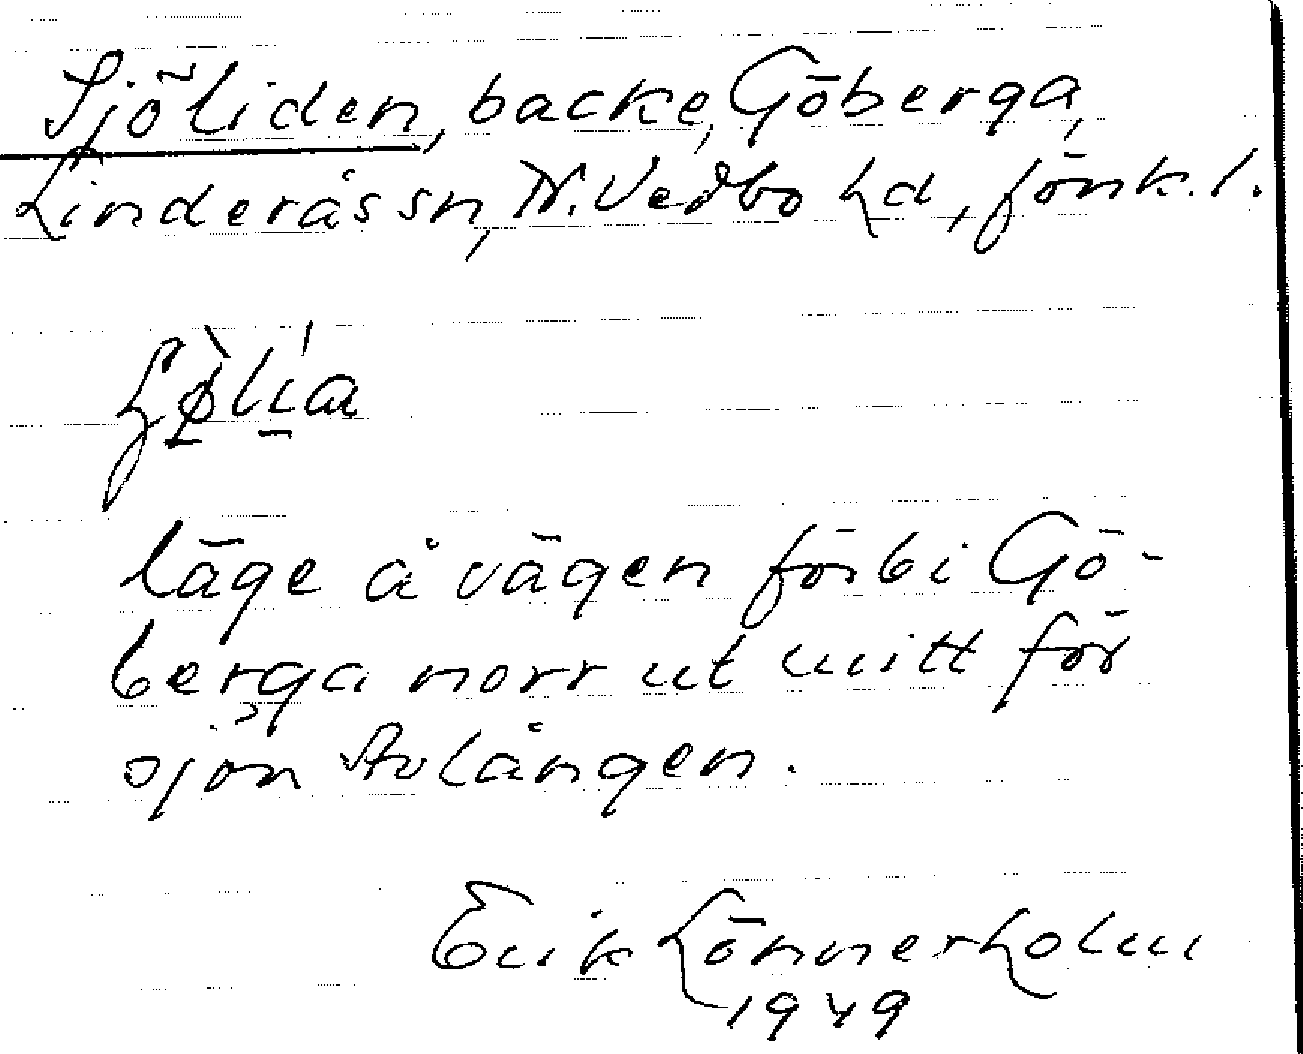 Sjöliden, backe, Göberga,
Linderås sn, N. Vedbo hd, Jönk. l.
läge å vägen förbi Gö-
berga norr ut mitt för
sjön Avlången.
Erik Lönnerholm
1949